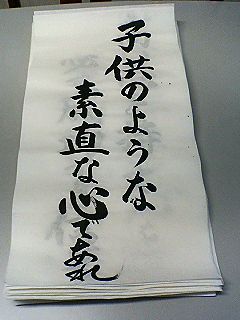 子供のような
素直な心であれ